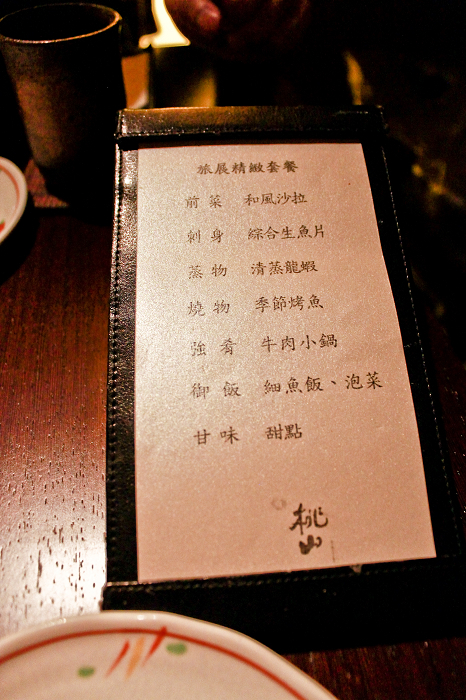 旅展精緻套餐
前菜 和風沙拉
刺身 綜合生魚片
蒸物 清蒸龍蝦
燒物 季節烤魚
強肴 牛肉小鍋
御飯 細魚飯、泡菜
甘味 甜點
桃山